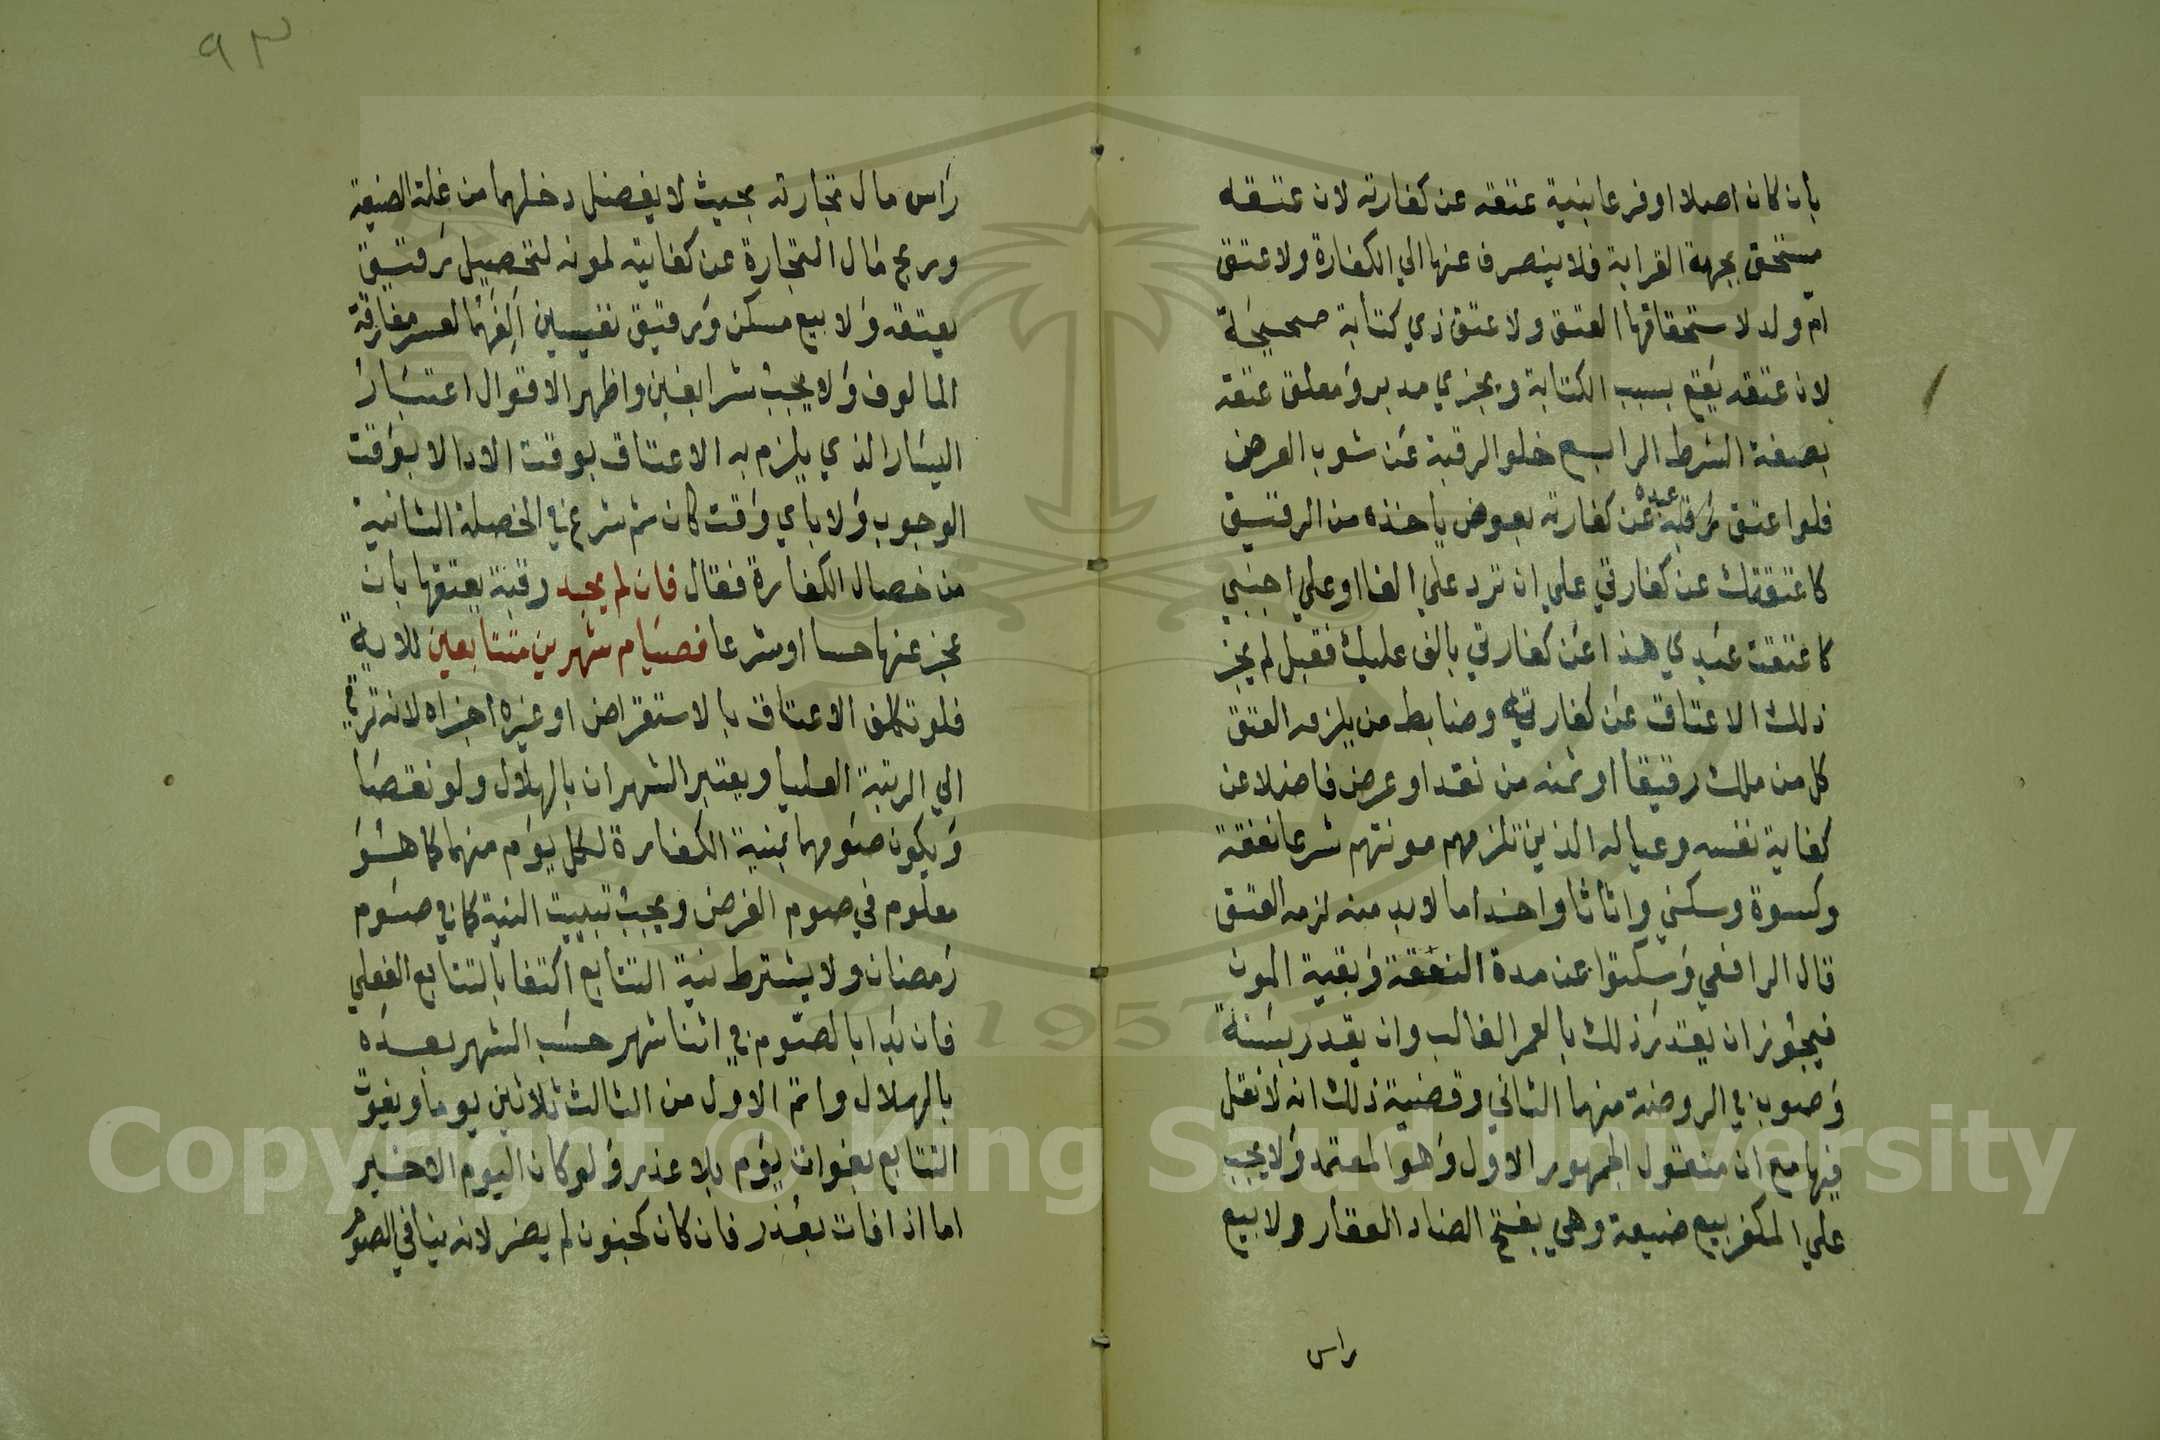 بان كان اصلا او فرعا بنية عتقه عن كفارته لان عتقه
مستحق بجهة القرابة فلا ينصرف عنها الي الكفارة ولا عتق
ام ولد لاستحقاقها العتق ولا عتق ذي كتابة صحيحة
لان عتقه يقع بسبب الكتابة ويجزي مدبر ومعلق عتقه
بصفة الشرط الرابع خلو الرقبة عن شوب العوض
فلو اعتق عبده عن كفارته بعوض ياخذه من الرقيق
كاعتقتك عن كفارتي علي ان ترد علي الفا او علي اجنبي
كاعتقت عبدي هذا عن كفارتي بالف عليك فقبل لم يجز
ذلك الاعتاق عن كفارته وضابط من يلزمه العتق
كل من ملك رقيقا او ثمنه من نقد او عرض فاضلا عن
كفاية نفسه وعياله الذين تلزمهم مونتهم شرعا نفقة
وكسوة وسكني واثاثا واخداما لا بد منه لزمه العتق
قال الرافعي وسكتوا عن مدة النفقة وبقية المون
فيجوز ان يقدر ذلك بالعمر الغالب وان يقدر بسنة
وصوب في الروضة منهما الثاني وقضية ذلك انه لا نقل
فيها مع ان منقول الجمهور الاول وهو المعتمد ولا يجب
علي المكفر بيع ضيعة وهي بفتح الضاد العقار ولا بيع
راس
٩٣
راس مال تجارته بحيث لا يفضل دخلهما من غلة الضيعة
وربح مال التجارة عن كفايته لمونه لتحصيل رقيق
يعتقه ولا بيع مسكن ورقيق نفيسين الفهما لعسر مفارقة
المالوف ولا يجب شرا بغبن واظهر الاقوال اعتبار
اليسار الذي يلزم به الاعتاق بوقت الادا لا بوقت
الوجوب ولا باي وقت كان ثم شرع في الخصلة الثانية
من خصال الكفارة فقال فان لم يجد رقبة يعتقها بان
عجز عنها حسا او شرعا فصيام شهرين متتابعين للاية
فلو تكلف الاعتاق بالاستقراض او غيره اجزاه لانه ترقي
الي الرتبة العليا ويعتبر الشهران بالهلال ولو نقصا
ويكون صومهما بنية الكفارة لكل يوم منهما كما هو
معلوم في صوم الفرض ويجب تبييت النية كما في صوم
رمضان ولا يشترط نية التتابع اكتفا بالتتابع الفعلي
فان بدا بالصوم في اثنا شهر حسب الشهر بعده
بالهلال واتم الاول من الثالث ثلاثين يوما ويفوت
التتابع بفوات يوم بلا عذر ولو كان اليوم الاخير
اما اذا فات بعذر فان كان كجنون لم يضر لانه ينافي الصوم
1957
Copyright © King Saud University